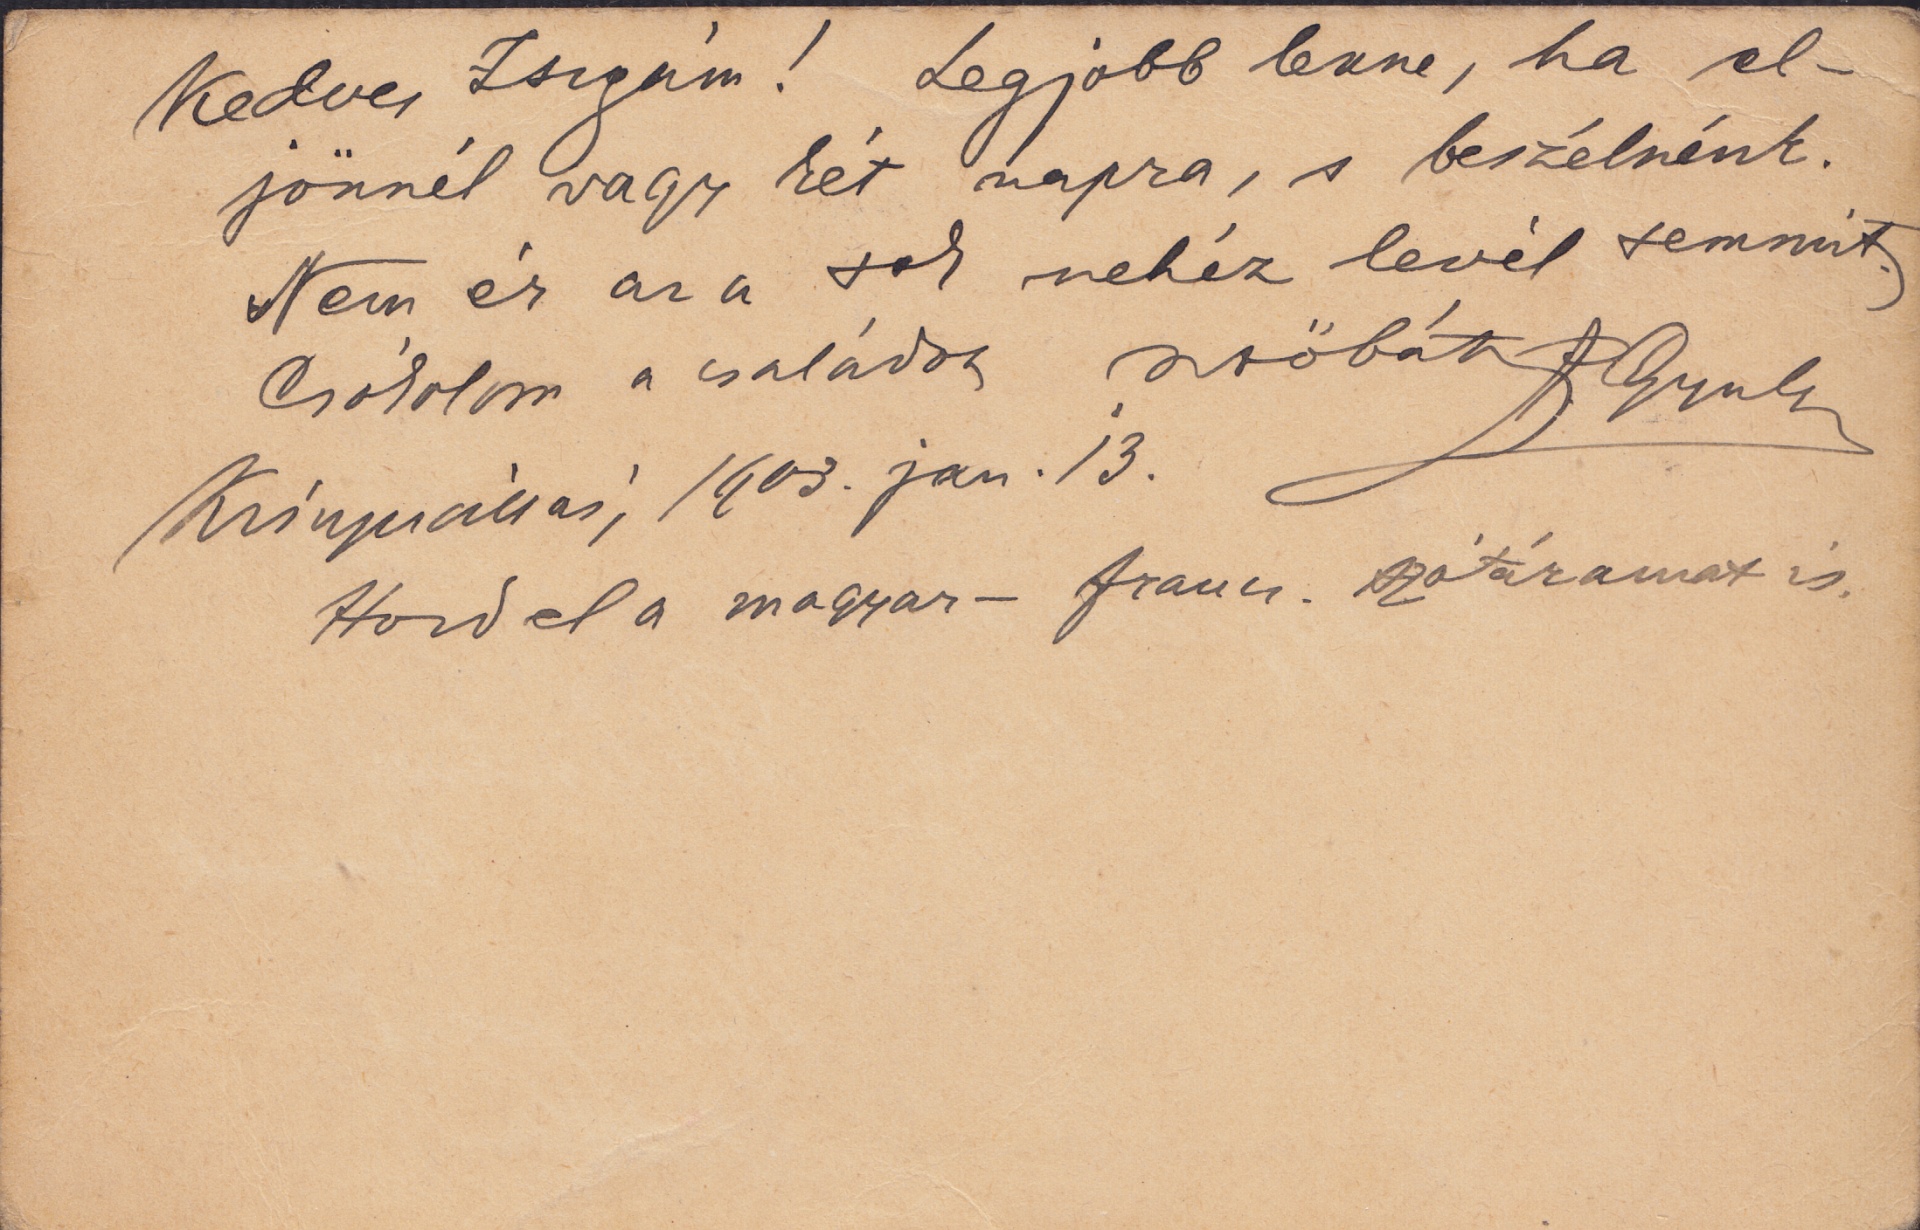 Kedves Zsigám! Legjobb lenne, ha el-
jönnél vagy két napra, s beszélnénk.
Nem ér az a sok nehéz levél semmit.
Csókolom a családot Gyula
1903. jan. 13.
Hord el a magyar- francz. szótáramat is.